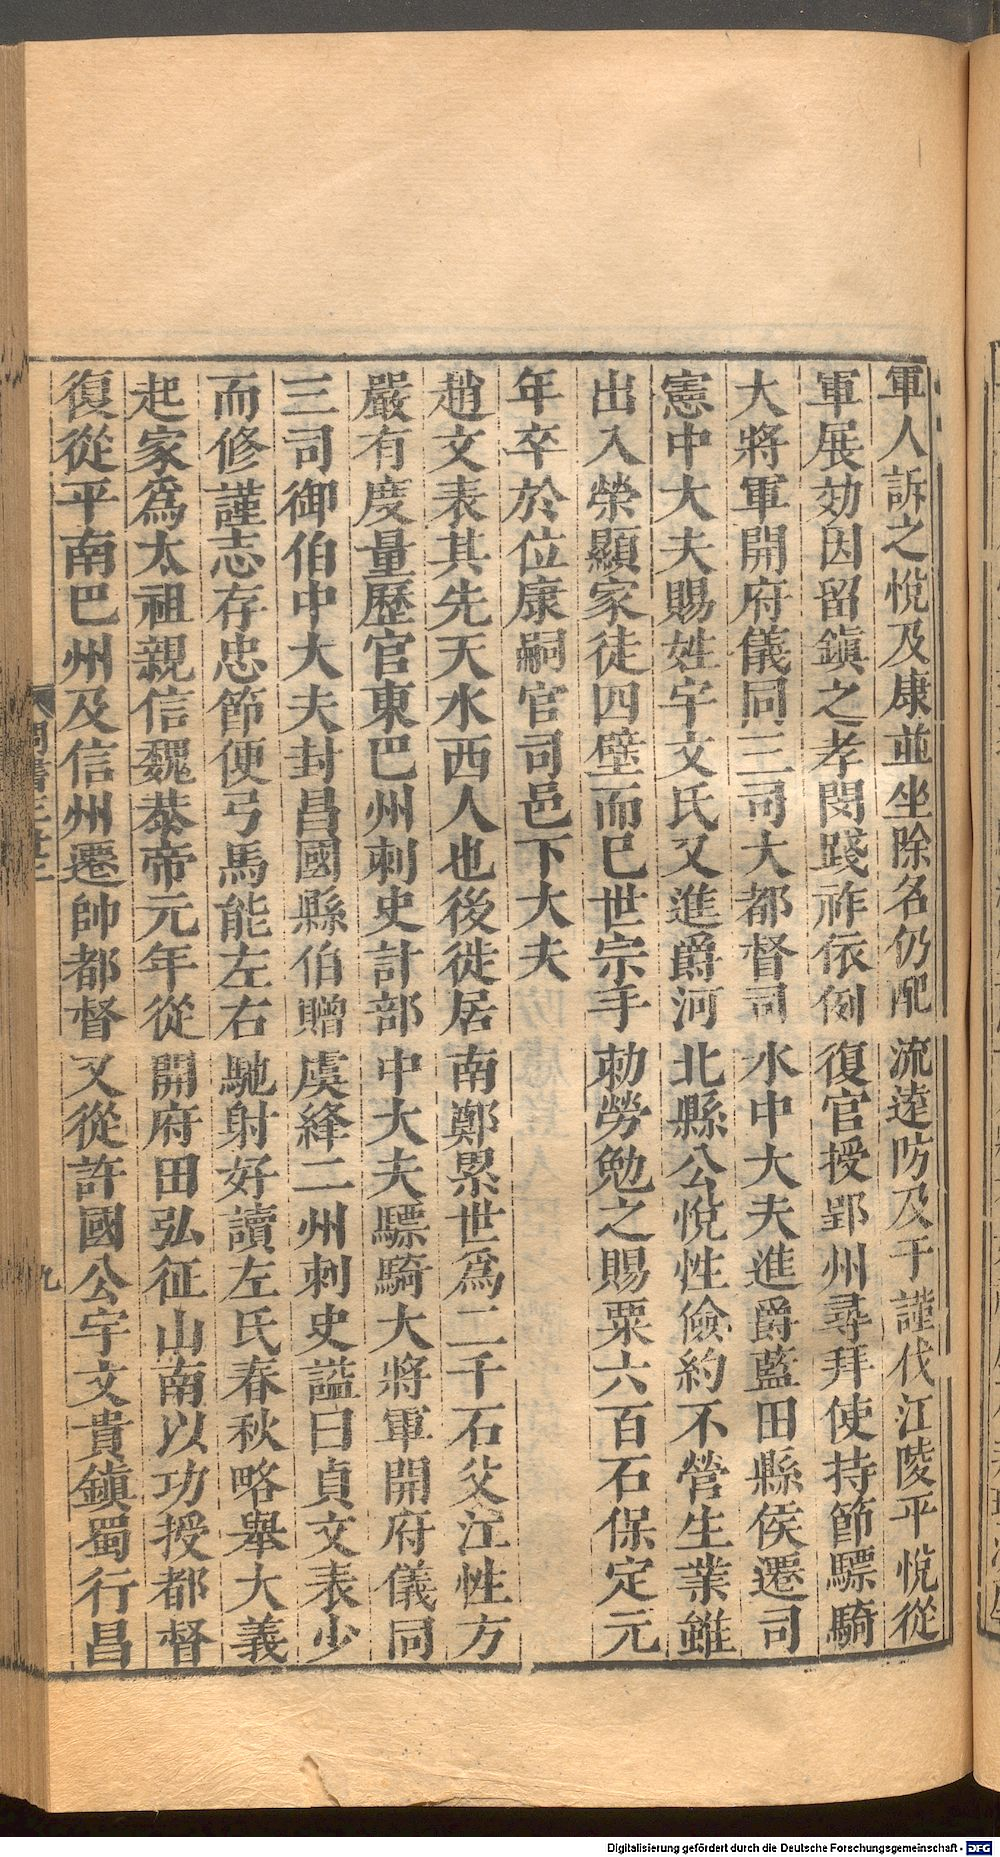 軍人訴之悅及康並坐除名仍配流遠防及于謹伐江陵平悅從
軍展効因留鎮之孝閔踐祚依例復官授郢州尋拜使持節驃騎
大將軍開府儀同三司大都督司水中大夫進爵藍田縣侯遷司
憲中大夫賜姓宇文氏又進爵河北縣公悅性儉約不營生業雖
出入榮顯家徒四壁而已世宗手勅勞勉之賜粟六百石保定元
年卒於位康嗣官司邑下大夫
趙文表其先天水西人也後徙居南鄭累世爲二千石父江性方
嚴有度量歷官東巴州刺史計部中大夫驃騎大將軍開府儀同
三司御伯中大夫封昌國縣伯贈虞絳二州刺史謚曰貞文表少
而修謹志存忠節便弓馬能左右馳射好讀左氏春秋略舉大義
起家爲太祖親信魏恭帝元年從開府田弘征山南以功授都督
復從平南巴州及信州遷帥都督又從許國公宇文貴鎮蜀行昌
周書三十三
九
Digitalisierung gefördert durch die Deutsche Forschungsgemeinschaft - DFG